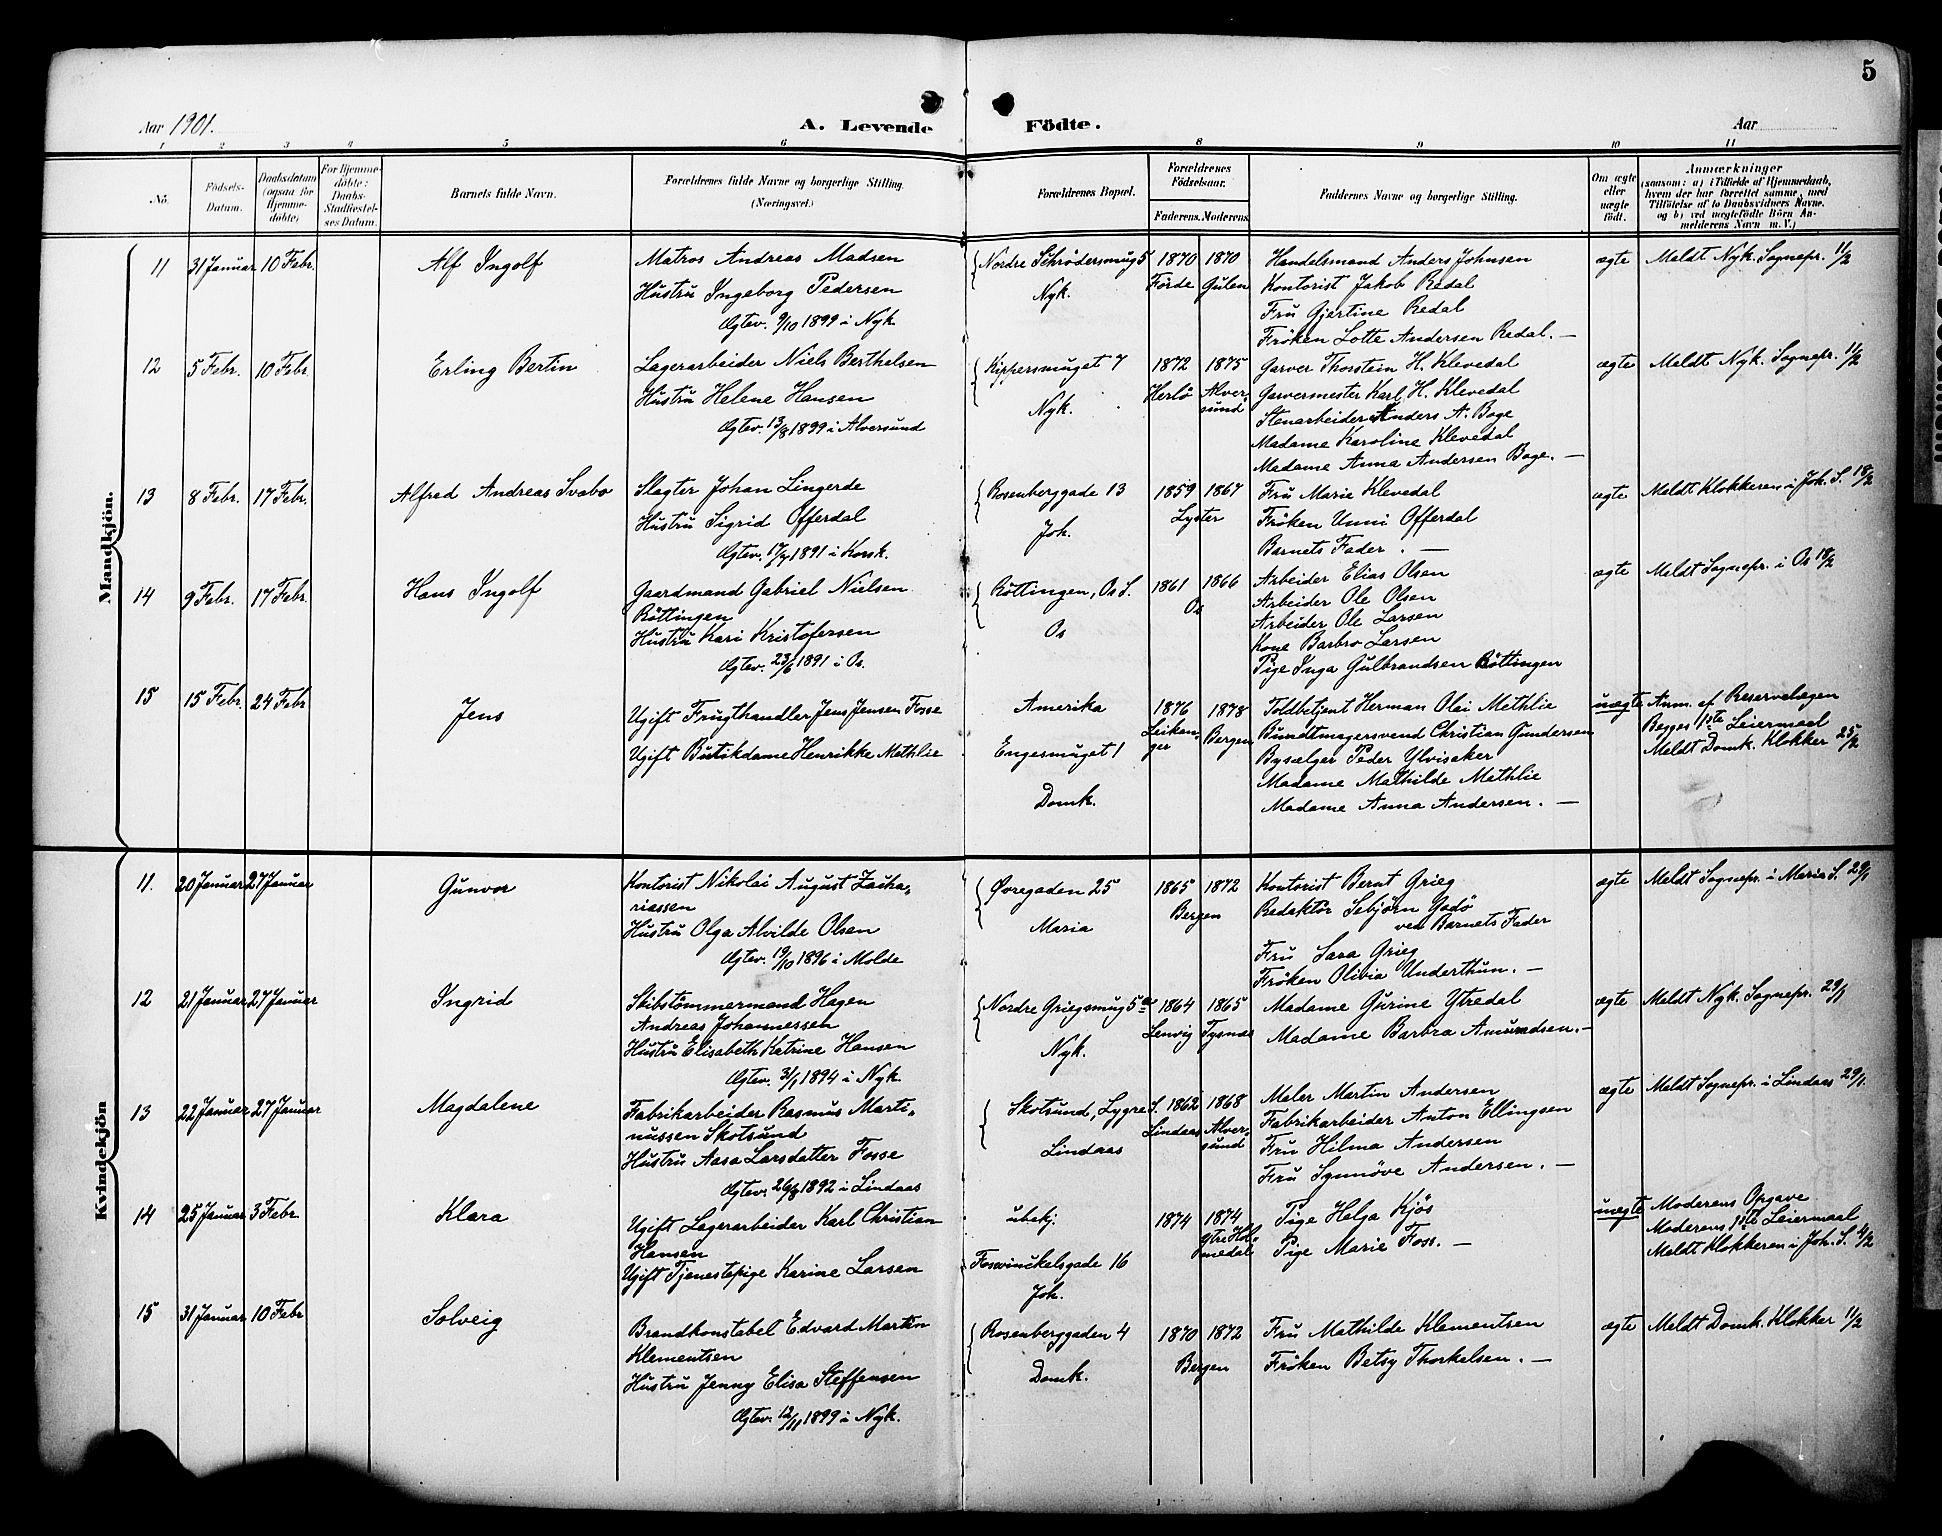 5
Aar 1901. A. Levende Födte. Aar
1 2 3 4 5 6 8 9 10 11
No.
Födsels-Datum.
Daabsdatum (ogsaa for Hjemme-döbte)
For Hjemme-döbte: Daabs-Stadfæstel-ses Datum.
Barnets fulde Navn.
Forældrenes fulde Navne og borgerlige Stilling. (Næringsvei.)
Forældrenes Bopæl.
Forældrenes Födselsaar.
Faderens. Moderens.
Faddernes Navne og borgerlige Stilling.
Om ægte eller uægte födt.
Anmærkninger
(saasom: a) i Tilfælde af Hjemmedaab, hvem der har forrettet samme, med Tilföielse af to Daabsvidners Navne, og b) ved uægtefödte Börn An-melderens Navn m. V.)
Mandkjön.
11 31 Januar 10 Febr. Alf Ingolf
Matros Andreas Madsen
Hustru Ingeborg Pedersen
Ægtev. 9/10 1899 i Nyk.
Nordre Schrödersmug 5
Nyk.
1870 1870
Förde Gulen
Handelsmand Anders Johnsen
Kontorist Jakob Redal
Fru Gjertine Redal
Fröken Lotte Andersen Redal. —
ægte Meldt Nyk. Sognepr. 11/2
12 5 Febr. 10 Febr. Erling Bertin
Lagerarbeider Niels Berthelsen
Hustru Helene Hansen
Ægtev. 13/8 1899 i Alversund
Kippersmuget 7
Nyk.
1872 1875
Herlö Alver-
sund
Garver Thorstein H. Klevedal
Garvermester Karl H. Klevedal
Stenarbeider Anders A. Boge
Madame Karoline Klevedal
Madame Anna Andersen Boge. —
ægte Meldt Nyk. Sognepr. 11/2
13 8 Febr. 17 Febr. Alfred Andreas Svabo
Slagter Johan Lingerde
Hustru Sigrid Offerdal
Ægtev. 17/4 1891 i Korsk.
Rosenberggade 13
Joh.
1859 1867
Lyster
Fru Marie Klevedal
Fröken Unni Offerdal
Barnets Fader. —
ægte Meldt Klokkeren i Joh. S. 18/2
14 9 Febr. 17 Febr. Hans Ingolf
Gaardmand Gabriel Nielsen
Röttingen
Hustru Kari Kristofersen
Ægtev. 23/6 1891 i Os.
Röttingen, Os S.
Os
1861 1866
Os
Arbeider Elias Olsen
Arbeider Ole Olsen
Arbeider Ole Larsen
Kone Barbro Larsen
Pige Inga Gulbrandsen Röttingen
ægte Meldt Sognepr. i Os 18/2
15 15 Febr. 24 Febr. Jens
Ugift Frugthandler Jens Jensen Fosse
Ugift Butikdame Henrikke Methlie
Amerika
Engesmuget 1
Domk.
1876 1878
Leikan-
ger Bergen
Toldbetjent Herman Olai Methlie
Bundtmagersvend Christian Gundersen
Bysælger Peder Ylvisaker
Madame Mathilde Methlie
Madame Anna Andersen. —
uægte Anm. af Reservelægen
Berges 1ste Leiermaal
Meldt Domk. Klokker 25/2
Kvindekjön
11. 20 Januar 27 Januar Gunvor
Kontorist Nikolai August Zacha-
riassen
Hustru Olga Alvilde Olsen
Ægtev. 19/10 1896 i Molde
Øvregaden 25
Maria
1865 1872
Bergen
Kontorist Bernt Grieg
Redaktör Sebjörn Godö
ved Barnets Fader
Fru Sara Grieg
Fröken Olivia Underthun. —
ægte Meldt Sognepr. i Maria S. 29/1
12 21 Januar 27 Januar Ingrid
Skibstömmermand Hagen
Andreas Johannessen
Hustru Elisabeth Katrine Hansen
Ægtev. 31/1 1894 i Nyk.
Nordre Griegsmug 5a
Nyk.
1864 1865
Lenvig Tysnæs
Madame Gurine Ytredal
Madame Barbra Amundsen. —
ægte Meldt Nyk. Sognepr. 29/1
13 22 Januar 27 Januar Magdalene
Fabrikarbeider Rasmus Marti-
nussen Skotsund
Hustru Aasa Larsdatter Fosse
Ægtev. 26/8 1892 i Lindaas
Skotsund, Lygre S.
Lindaas
1862 1868
Lindaas Alver-
sund
Maler Martin Andersen
Fabrikarbeider Anton Ellingsen
Fru Hilma Andersen
Fru Synnöve Andersen. —
ægte Meldt Sognepr. i Lindaas 29/1.
14 25 Januar 3 Febr. Klara
Ugift Lagerarbeider Karl Christian
Hansen
Ugift Tjenestepige Karine Larsen
ubekj.
Fosswinckelsgade 16
Joh.
1874 1874
Ytre Hol-
medal
Pige Helga Kjös
Pige Marie Foss. —
uægte Moderens Opgave
Moderens 1ste Leiermaal
Meldt Klokkeren i Joh. S. 4/2
15 31 Januar 10 Febr. Solveig
Brandkonstabel Edvard Martin
Klementsen
Hustru Jenny Elisa Steffensen
Ægtev. 12/11 1899 i Nyk.
Rosenberggaden 4
Domk.
1870 1872
Bergen
Fru Mathilde Klementsen
Fröken Betsy Thorkelsen. —
ægte Meldt Domk. Klokker 11/2